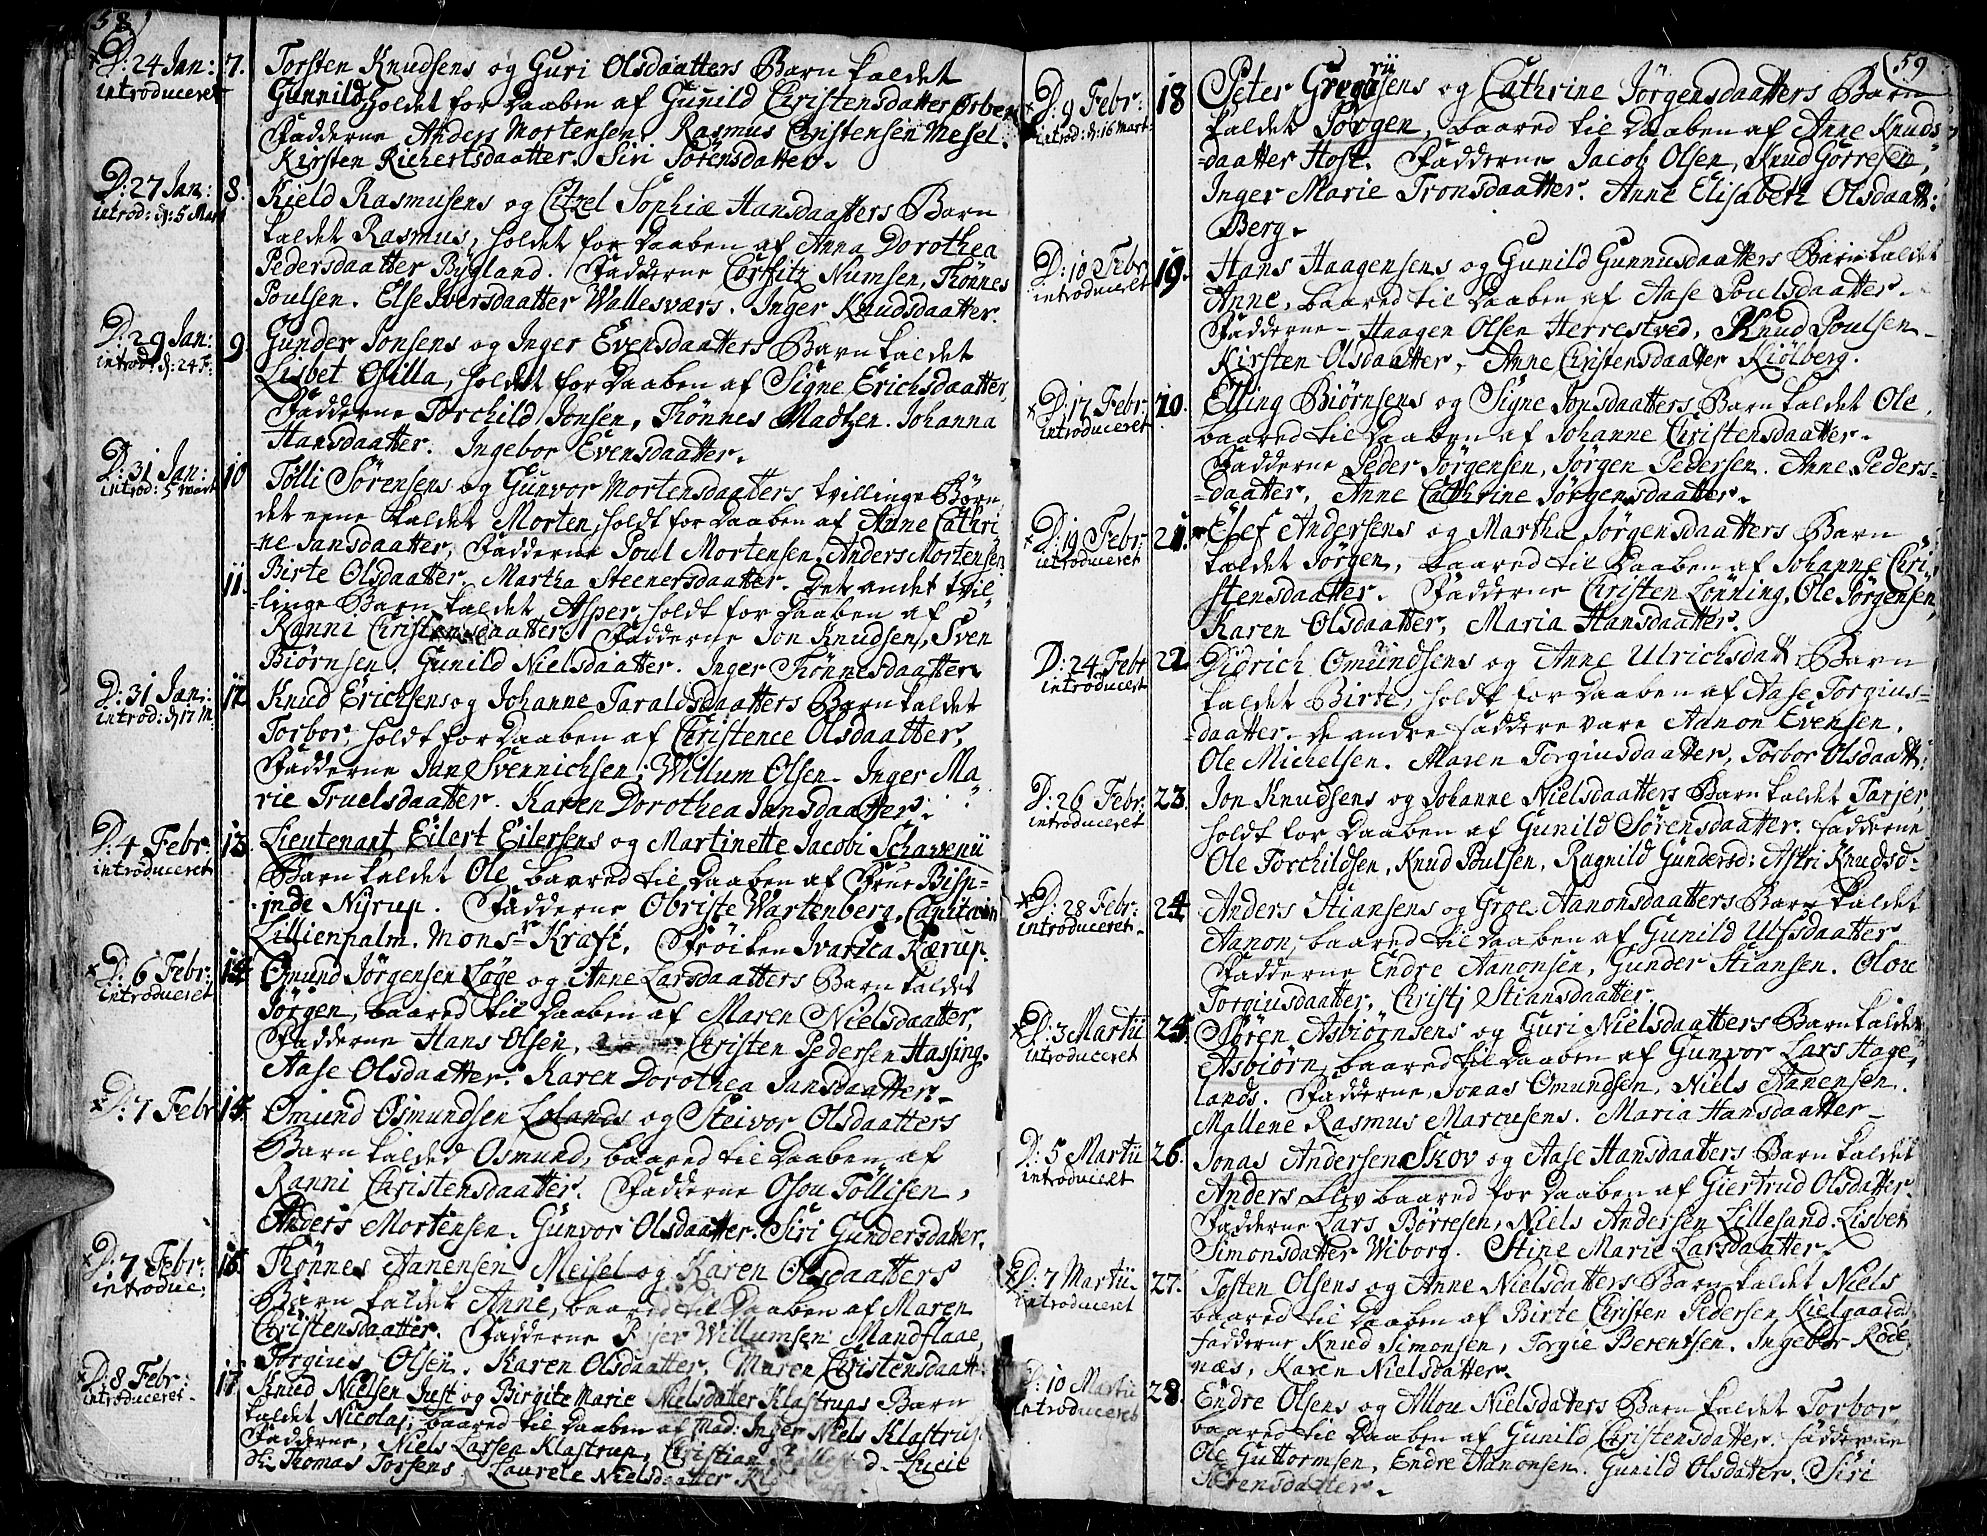 58
D: 24 Jan: 7. Torsten Knudsens og Guri Olsdaatters Barn kaldet
introduceret Gunnild, holdet for Daaben af Gunild Christensdatter
Fadderne Anders Mortensen, Rasmus Christensen Mesel.
Kirsten Richertsdaatter. Siri Sørensdatter.
D: 27 Jan: 8. Kield Rasmusens og Citzel Sophiæ Hansdaatters Barn
introd: d: 5 Mart kaldet Rasmus, holdet for Daaben af Anna Dorothea
Pedersdaatter Bygland. Fadderne Corfitz Numsen, Thönnes
Poulsen. Else Iversdaatter Wallesværs. Inger Knudsdaatter.
D: 29 Jan: 9. Gunder Jonsens og Inger Evensdaatters Barn kaldet
introd: d: 24 F: Lisbet Osilla, holdet for Daaben af Signe Erichsdaatter,
Fadderne Torchild Jonsen, Thönnes Madtzen. Johanna
Hansdaatter. Ingebor Evensdaatter.
D: 31 Jan: 10 Tølli Sørensens og Gunvor Mortensdaatters tvillinge Børn,
introd: 5 Mart det eene kaldet Morten, holdt for Daaben af Anne Cathri
-ne Jansdaatter, Fadderne Poul Mortensen, Anders Mortensen
11. Birte Olsdaatter, Martha Steenersdaatter. Det andet tvil
-linge Barn kaldet Asper, holdt for Daaben af
Ranni Christensdaatter. Fadderne Jon Knudsen, Sven
Biørnsen, Gunild Nielsdaatter. Inger Thönnesdaatter
D: 31 Jan: 12 Knud Erichsens og Johanne Taraldsdaatters Barn kaldet
introd: d 17 M: Torbor, holdt for Daaben af Christence Olsdaatter,
Fadderne Jan Svennichsen, Willum Olsen. Inger Ma
rie Truelsdaatter. Karen Dorothea Jansdaatter.
D: 4 Febr: 13. Lieutenant Eilert Eilersens og Martinette Jacobi Schavenii
introduceret Barn kaldet Ole, baared til Daaben af Frue Bisp-
inde Nyrup. Fadderne Obriste Wartenberg, Capitain
Lillienpalm. Monsr Kraft. Frøiken Ivarica Kærup.
D: 6 Febr: 14. Omund Jørgensen Løge og Anne Larsdaatters Barn kaldet
introduceret Jørgen, baared til Daaben af Maren Nielsdaatter,
Fadderne Hans Olsen, Christen Pedersen Hassing.
Aase Olsdaatter. Karen Dorothea Jansdaatter.
D: 7 Febr 15. Omund Osmundsen Lolands og Steivor Olsdaatters
Barn kalded Osmund, baared til Daaben af
Ranni Christensdaatter. Fadderne Osou Tøllisen,
Anders Mortensen. Gunvor Olsdaatter. Siri Gundersdatter.
D: 7 Febr: 16. Thönnes Aanensen Meisel og Karen Olsdaatters
introduc: Barn kaldet Anne, baared til Daaben af Maren
Christensdaatter. Fadderne Rejer Willumsen Mandflaae,
Torgius Olsen. Karen Olsdaatter, Maren Christensdaatt:
D: 8 Febr: 17. Knud Nielsen Just og Birgite Marie Nielsdatter Klastrups Barn
introduceret kaldet Nicolaj, baared til Daaben af Mad: Inger Niels Klastrup.
Fadderne, Niels Larsen Klastrup, Christian
Thomas Torsens, Laurele Nielsdaatter
59
D: 9 Febr: 18 Peter Gregorii sens og Cathrine Jørgensdaatters Barn
introd: d: 16 Mart. kaldet Jørgen, baared til Daaben af Anne Knuds
-daatter Host. Fadderne Jacob Olsen, Knud Gorresen,
Inger Marie Tronsdaatter. Anne Elisabeth Olsdaatt:
Berg.
D: 10 Febr 19. Hans Haagensens og Gunild Gunnusdaatters Barn kaldet
introduceret Anne, baared til Daaben af Aase Poulsdaatter.
Fadderne Haagen Olsen Herrestved, Knud Poulsen
Kirsten Olsdaatter, Anne Christensdaatter Kiölberg.
D: 17 Febr: 20. Elling Biørnsens og Signe Jonsdaatters Barn kaldet Ole,
introduceret baared til Daaben af Johanne Christensdaatter.
Fadderne Peder Jørgensen, Jørgen Pedersen. Anne Peders-
-daatter, Anne Cathrine Jørgensdaatter.
D: 19 Febr: 21. Elef Andersens og Martha Jørgensdaatters Barn
introduceret kaldet Jørgen, baared til Daaben af Johanne Chri
stensdaatter. Fadderne Christen Lønning, Ole Jørgensen,
Karen Olsdaatter, Maria Hansdaatter.
D: 24 Febr 22. Didrich Omundsens og Anne Ulrichsdatt Barn
introduceret kaldet Birte, holdt for Daaben af Aase Torgius-
-daatter. de andre faddere vare Aanon Evensen.
Ole Michelsen. Maren Torgiusdaatter, Torbor Olsdaatt:
D: 26 Febr: 23. Jon Knudsens og Johanne Nielsdaatters Barn kaldet Tarjer,
introduceret holdt for Daaben af Gunild Sørensdaatter. fadderne
Ole Torchildsen, Knud Poulsen, Ragnild Gundersd: Astri Knudsd-
D: 28 Febr: 24. Anders Stiansens og Groe Aanonsdaatters Barn kaldet
introduceret. Aanon, baared til Daaben af Gunild Ulfsdaatter
Fadderne Endre Aanonsen, Gunder Stiansen. Olou
Torgiusdaatter, Christj Stiansdaatter.
D: 3 Martii 25. Søren Asbiørnsens og Guri Nielsdaatters Barn kaldet
introduceret Asbiørn, baared til Daaben af Gunvor Lars Hage
lands. Fadderne, Jonas Omundsen, Niels Aanensen.
Mallene Rasmus Marcusens. Maria Hansdaatter
D: 5 Martii 26. Jonas Andersen Skov og Aase Hansdaatters Barn kaldet
introduceret Anders Elev baared for Daaben af Giertrud Olsdatter.
Fadderne Lars Børresen, Niels Andersen Lillesand. Lisbet
Simonsdatter Wiborg. Stine Marie Larsdaatter.
D: 7 Martii 27. Tosten Olsens og Anne Nielsdatters Barn kaldet Niels
introduceret baared til Daaben af Birte Christen Pedersen Kielgaards
fadderne Knud Simonsen, Torgie Berentsen. Ingebor Röde
næs, Karen Nielsdatter.
D: 10 Martii 28. Endre Olsens og Allou Nielsdatters Barn kaldet Torbor,
introduceret baared til Daaben af Gunild Christensdatter. fadderne
Ole Guttormsen, Endre Aanonsen. Gunild Olsdatter. Siri
Sørensdatter.